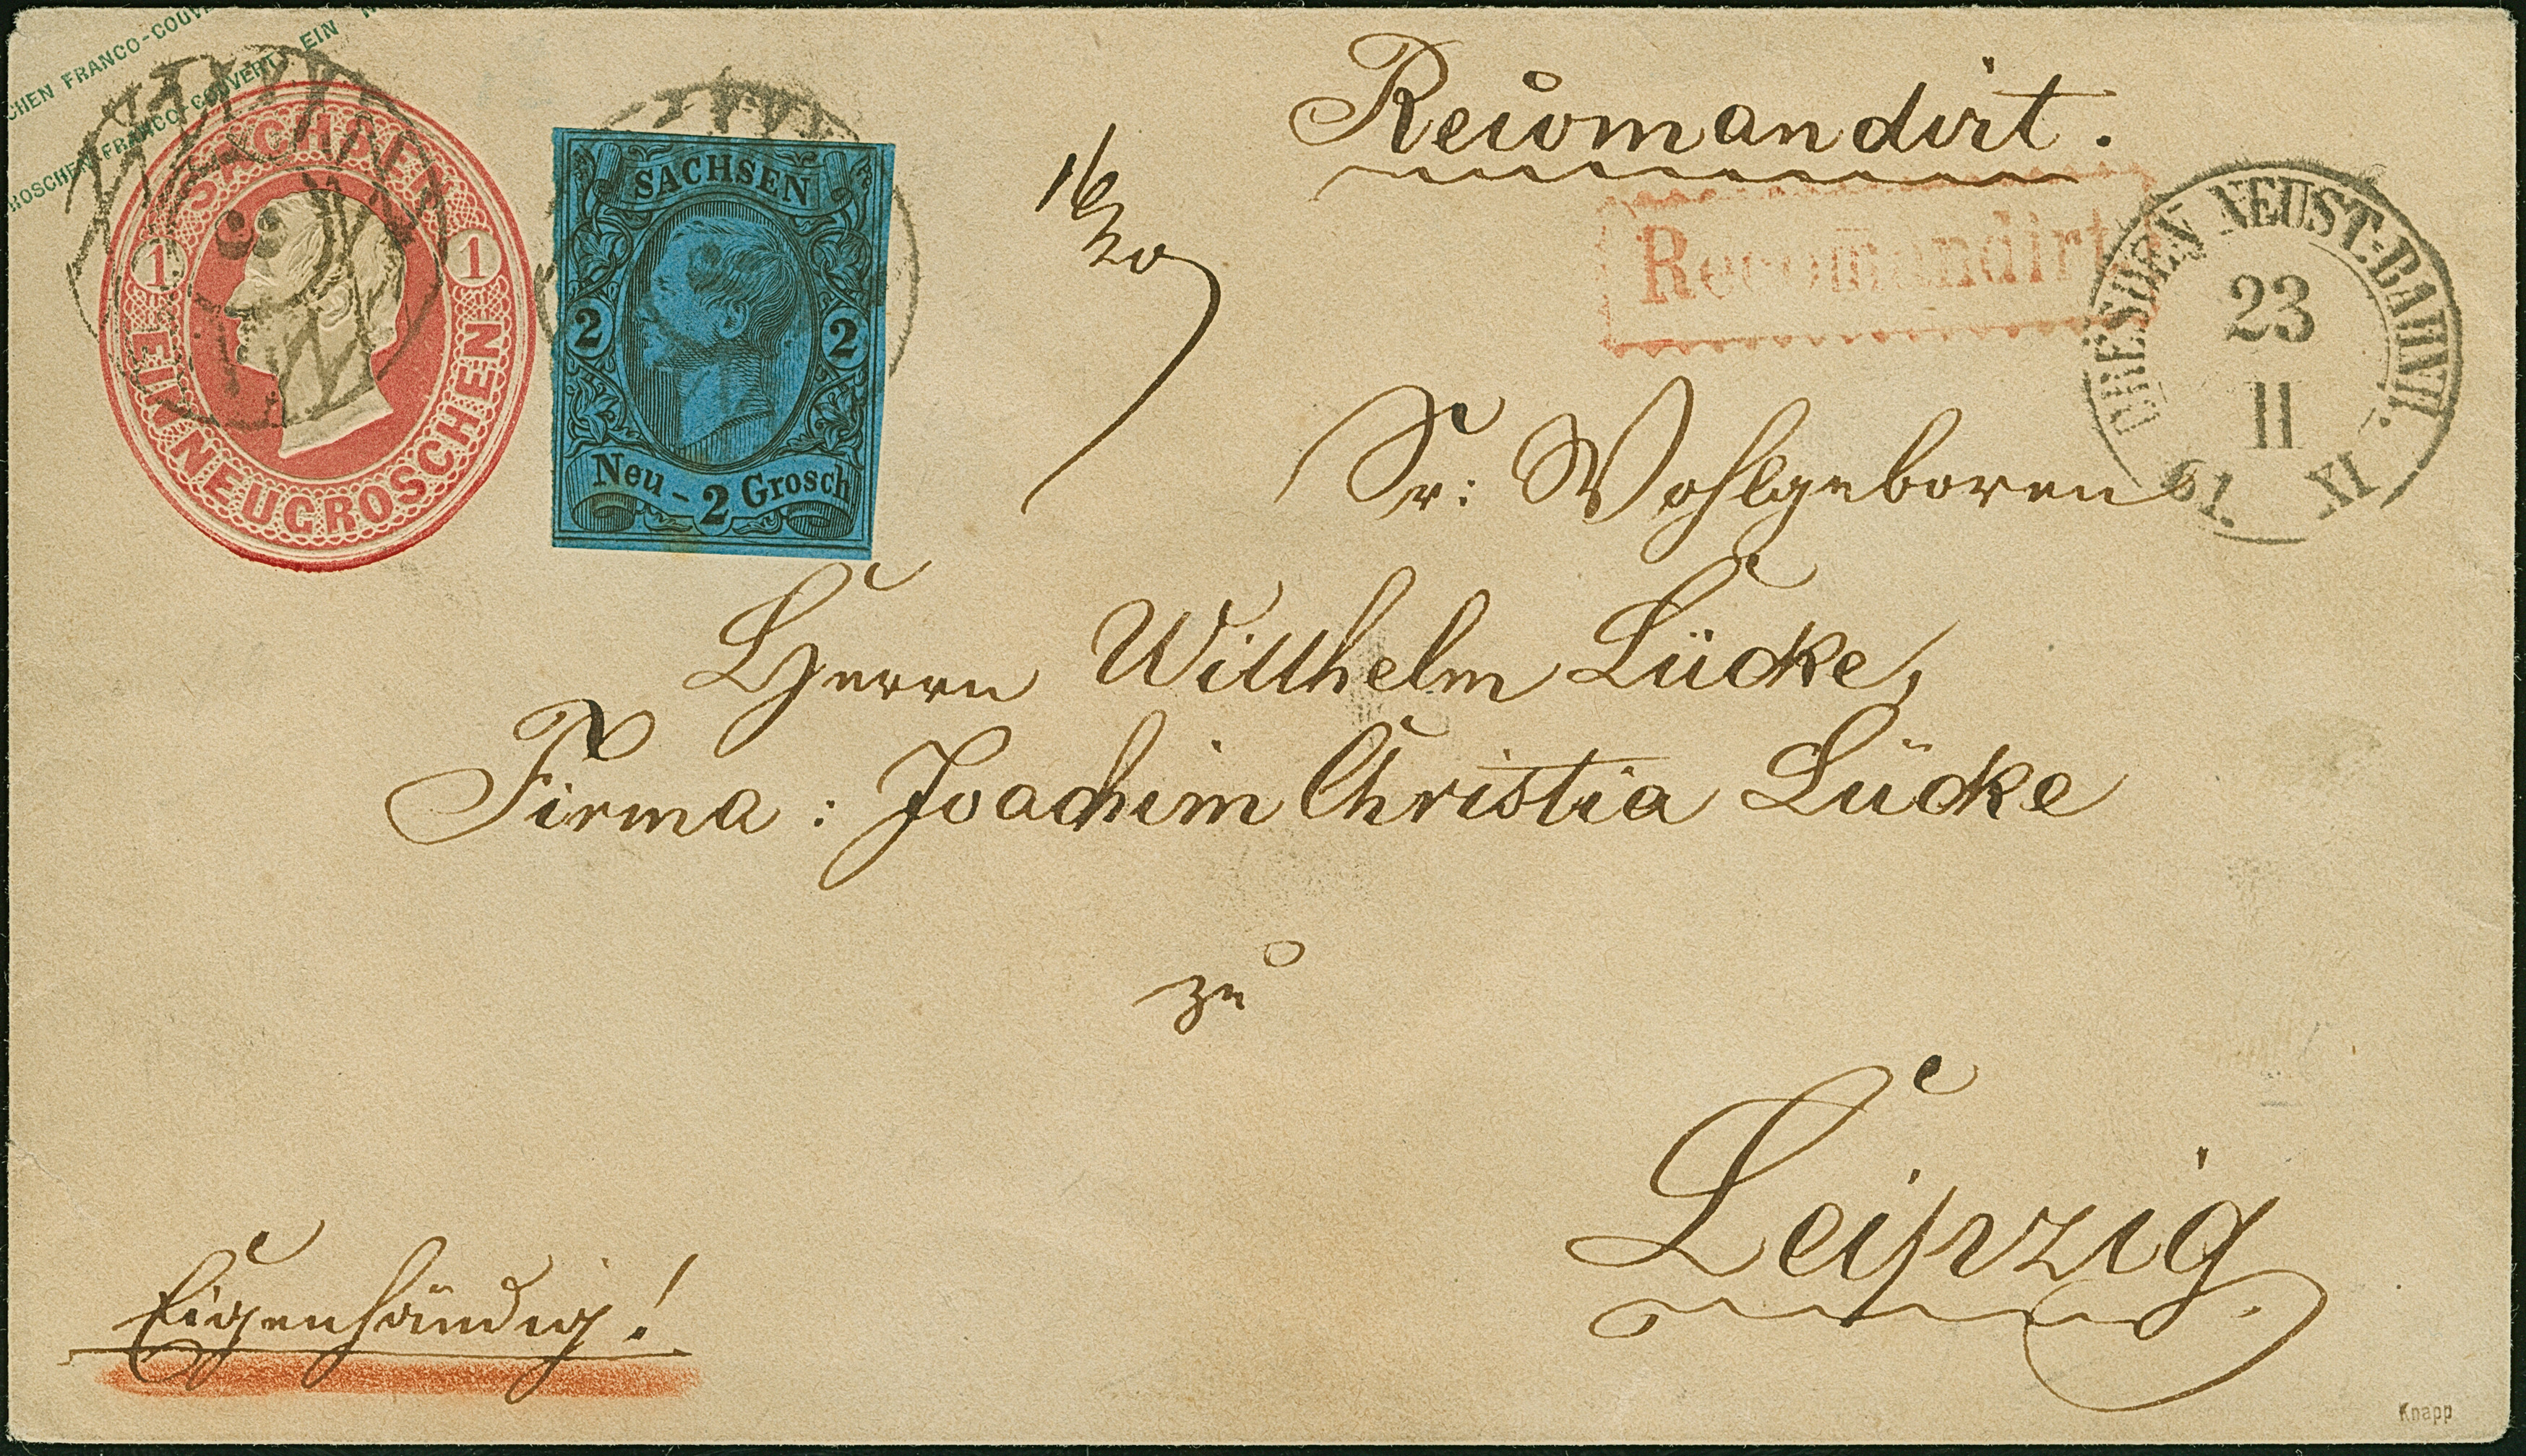 CHEN FRANCO-COUV
EIN N
ROSCHEN FRANCO-COUVERT
SACHSEN
1 1
EIN NEUGROSCHEN
SACHSEN
2 2
Neu-2 Grosch
Recomandirt.
16
Recomandirt
DRESDEN NEUST.-BAHNH.
23
II
61. XI
Sr: Wohlgeboren
Herrn Willhelm Lücke,
Firma: Joachim Christia Lücke
zu
Leipzig
Eigenhändig!
Knapp